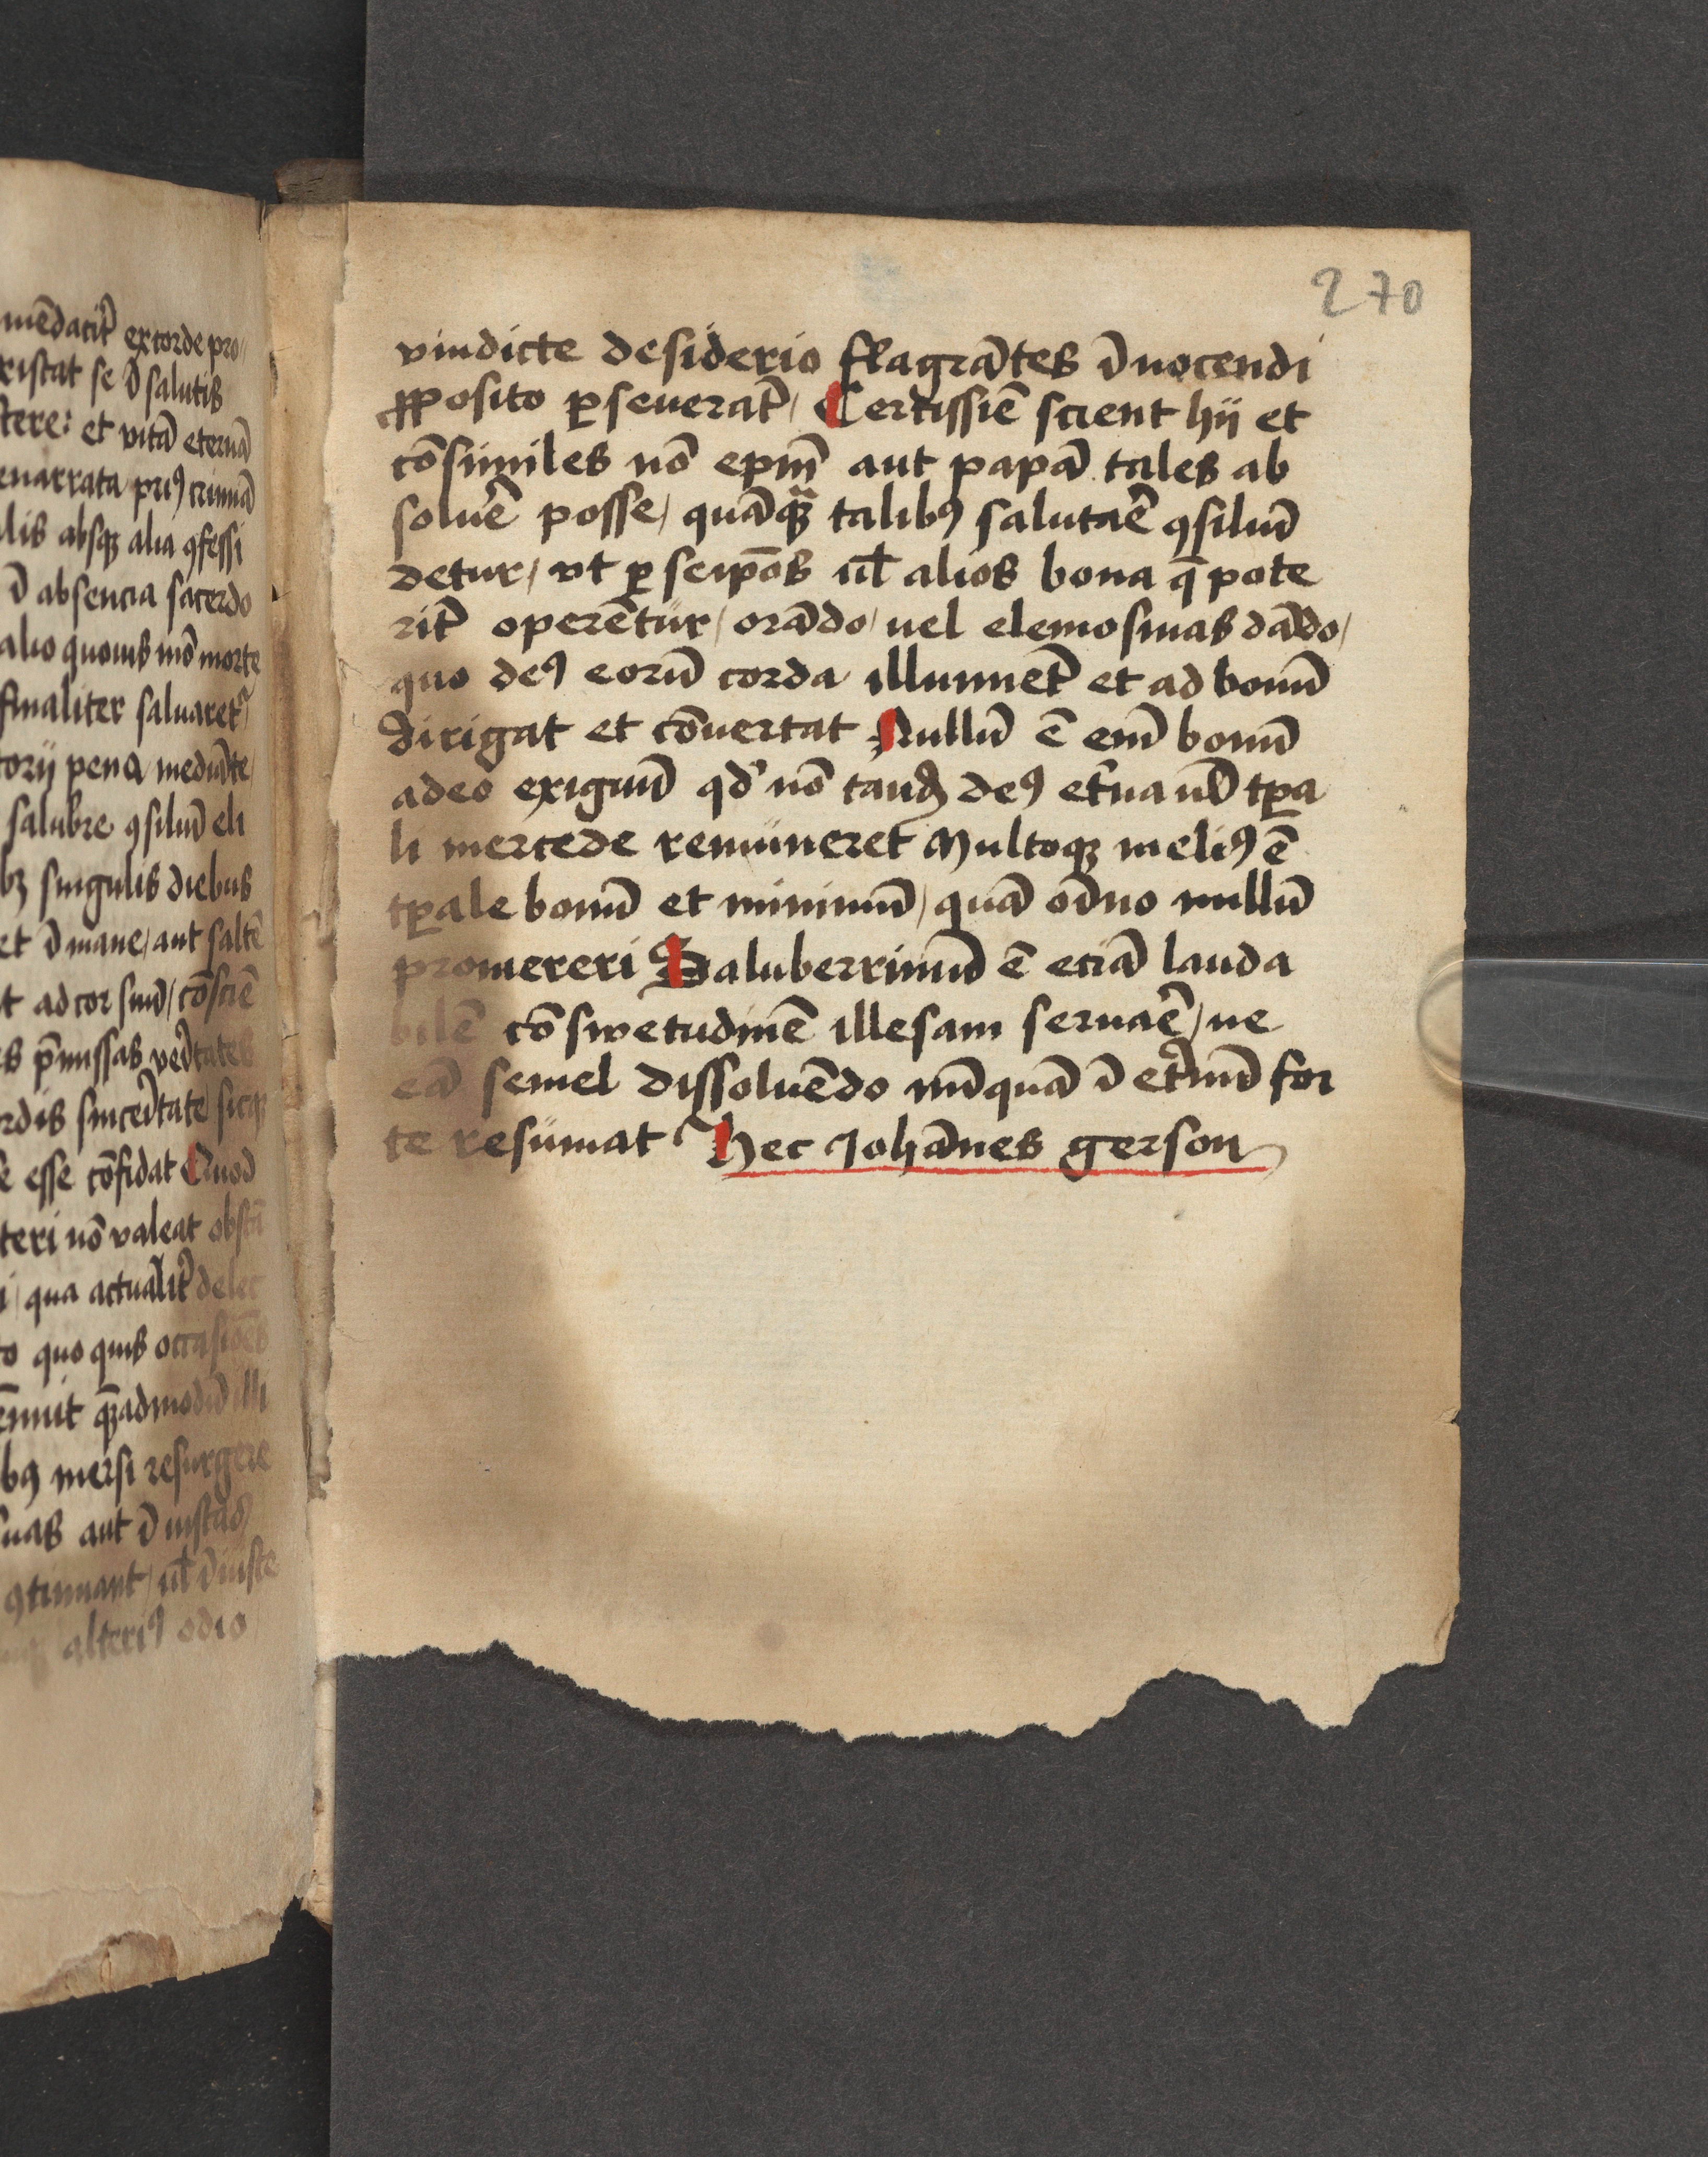 mēdatit̉ ex corde pro
ristat se ī salutis
tere: et vitā eternā
enarrata priꝰ criminā
lis absqꝫ alia ꝯfessi
ī absencia sacerdo
alio quouis mō morte
finaliter saluaret̉
torij pena mediāte
salubre ꝯsiliū eli
bꝫ singulis diebus
et ī mane / aut saltē
t ad cor suū / cōsciē
es p̄missas veritates
rdis sinceritate / sicqꝫ
e esse cōfidat Quod
teri nō valeat obstā
i / qua actualit̉ delec
to quo quis occasiōes
quēadmodū illi
bꝰ mersi resurgere
suas aut ī iustas
ꝯtinuant / ul̄ ī iuste
alteriꝰ odio
270
vindicte desiderio flagrātes ī nocendi
ꝓposito ꝑseuerāt / Certissiē scient hij et
cōsimiles nō epm̄ aut papā tales ab
soluē posse / quāqꝫ talibꝰ salutaē ꝯsiliū
detur / vt ꝑ seip̄os ul̄ alios bona q̄ pote
rit̉ operētur / orādo / uel elemosinas dādo /
quo deꝰ eorū corda illuminet̉ et ad bonū
dirigat et cōuertat Nullū ē enī bonū
adeo exiguū qd̉ nō tandē deꝰ et̉na ul̄ tꝑa
li mercede remuneret Multoqꝫ meliꝰ ē
tꝑale bonū et minimū / quā oīno nullū
promereri Saluberrimū ē eciā lauda
bilē cōswetudinē illesam seruaē / ne
eā semel dissoluēdo nūquā ī et̉nū for
te resumat Hec Johānes gerson